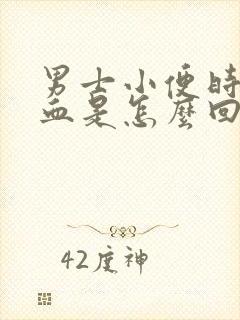 男士小便时
血是怎麼回
42度神